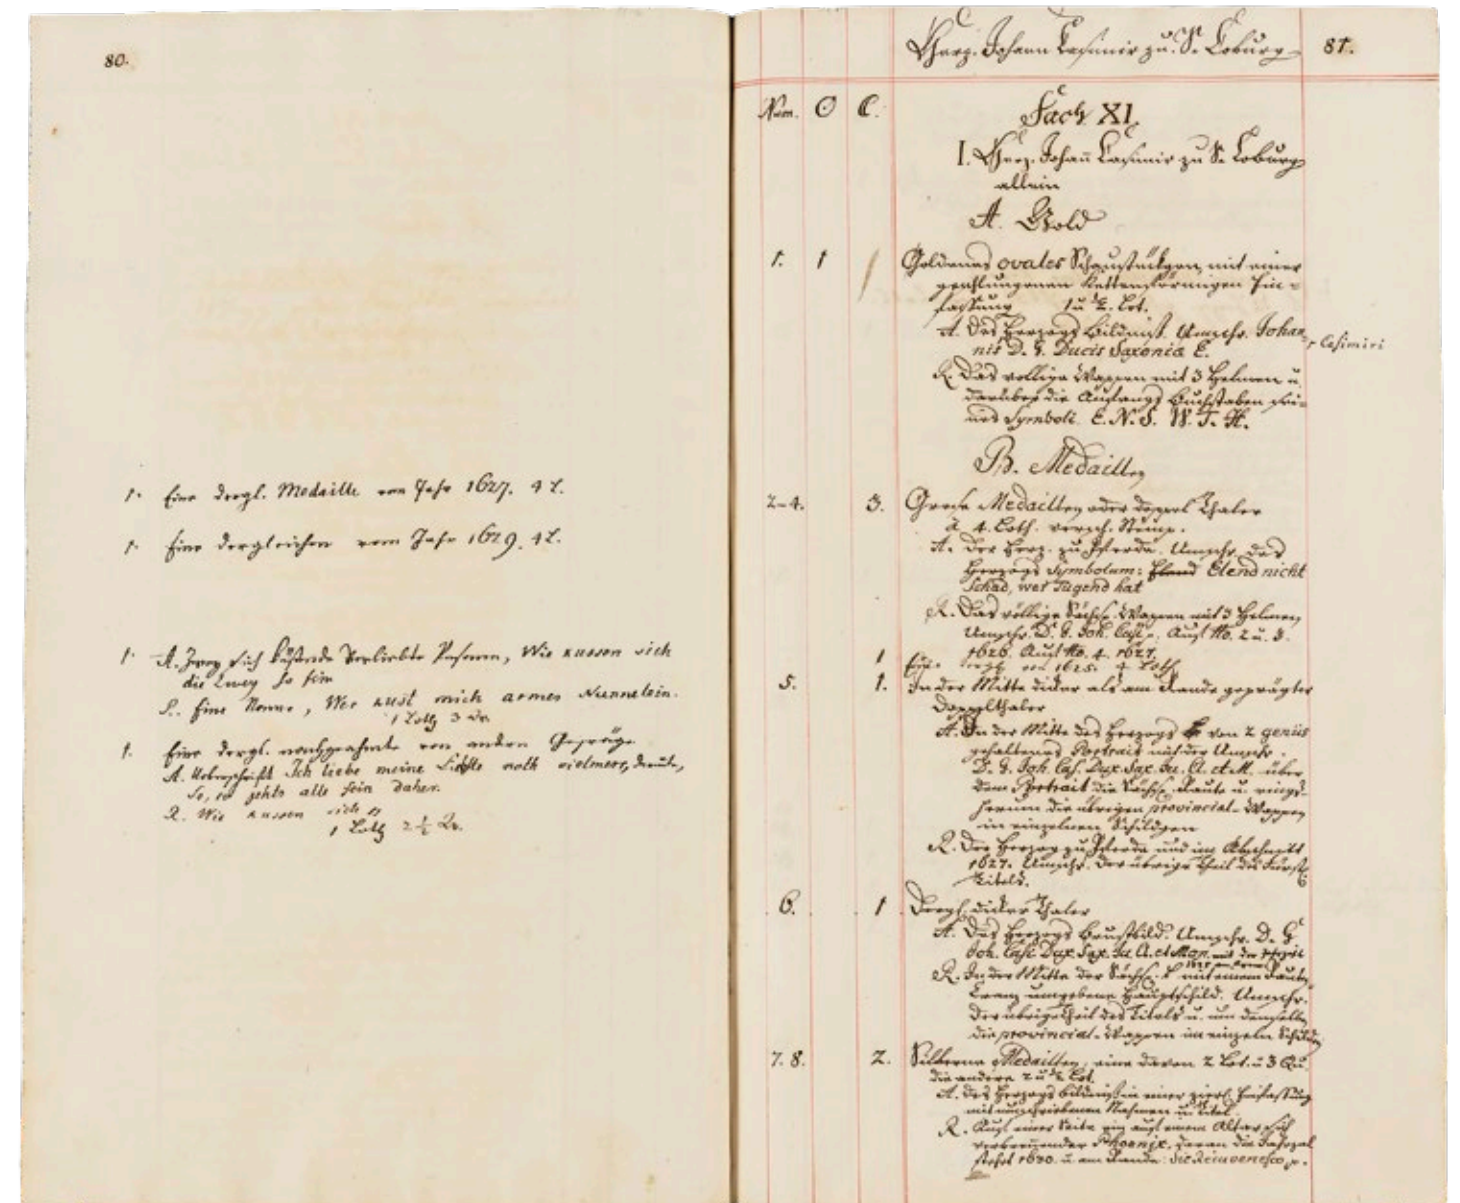 80.
1. Eine dergl. Medaille vom Jahr 1627. 4 L.
1. Eine dergleichen vom Jahr 1629. 4 L.
1. A. Zwey sich küssende verliebte Personen, Wie kussen sich
die Zwey so fein
R. Eine Nonne, Wer kust mich armes Nunnelein.
1 Loth 3
1. Eine dergl. nachgeahmte von andern Gepräge
A. Ueberschrift Ich liebe meine noch vielmehr,
So, so gehts alle fein daher.
R. Wie kussen sich
1 Loth 2 1/2 Qu.
Herz. Johann Casimir zu S. Coburg 81.
Num. O C.
Fach XI.
I. Herz. Johann Casimir zu S. Coburg
allein
A. Gold
1. 1 Goldenes ovales Schaustückgen, mit einer
geschlungenen Kettenförmigen Ein-
fassung 1 u. 1/2 Lot.
A. Des Herzogs Bildniß. Umschr. Johan-
nis D. G. Ducis Saxoniæ E. Casimiri
R. Das völlige Wappen mit 3 Helmen u.
darüber die Anfangs Buchstaben sei-
nes Symboli. E. N. S. W. T. H.
B. Medaillen
2-4. 3. Grose Medaillen oder doppel Thaler
à 4. Loth. versch. Stemp.
A. Der Herz. zu Pferde. Umschr. des
Herzogs Symbolum: Elend Elend nicht
Schad, wer Tugend hat
R. Das völlige Sächs. Wappen mit 3 Helmen
Umschr. D. G. Joh. Casi. Auf No. 2 u. 3.
1626. Auf No. 4. 1627.
1 Eine dergl. von 1625. 4 Loth
5. 1. In der Mitte dicker als am Rande geprägter
Doppelthaler
A. In der Mitte des Herzogs von 2 genüs
gehaltenes Portrait mit der Umschr.
D. G. Joh. Cas. Dux. Sax. Iu. C. et M. über
dem Portrait die Sächs. Raute u. rings-
herum die übrigen provincial-Wappen
in einzelnen Schildgen
R. Der Herzog zu Pferde und im Abschnitt
1627. Umschr. der übrige Theil des Fürstl.
Titels.
6. 1 Dergl. dicker Thaler
A. Des Herzogs Brustbild. Umschr. D. G.
Joh. Casi Dux. Sax. Iu. C. et Mon. mit der
R. In der Mitte der Sächs. mit einem Rauten
Cranz umgebene Hauptschild. Umschr.
der übrige Theil des Titels u. um denselben
die provincial-Wappen in einzeln Schilden
7. 8. 2. Silberne Medaillen, eine davon 2 Lot. u. 3 Qu.
die andere 2 u. 1/2 Lot.
A. des Herzogs Bildniß in einer zierl. Einfassung
mit umschriebenen Nahmen u. Titel.
R. Auf einer Seite ein auf einem Altar sich
verbrennender Phoenix, daran die Jahrzal
steht 1630. u. am Rande: Sic Reiuvenesco